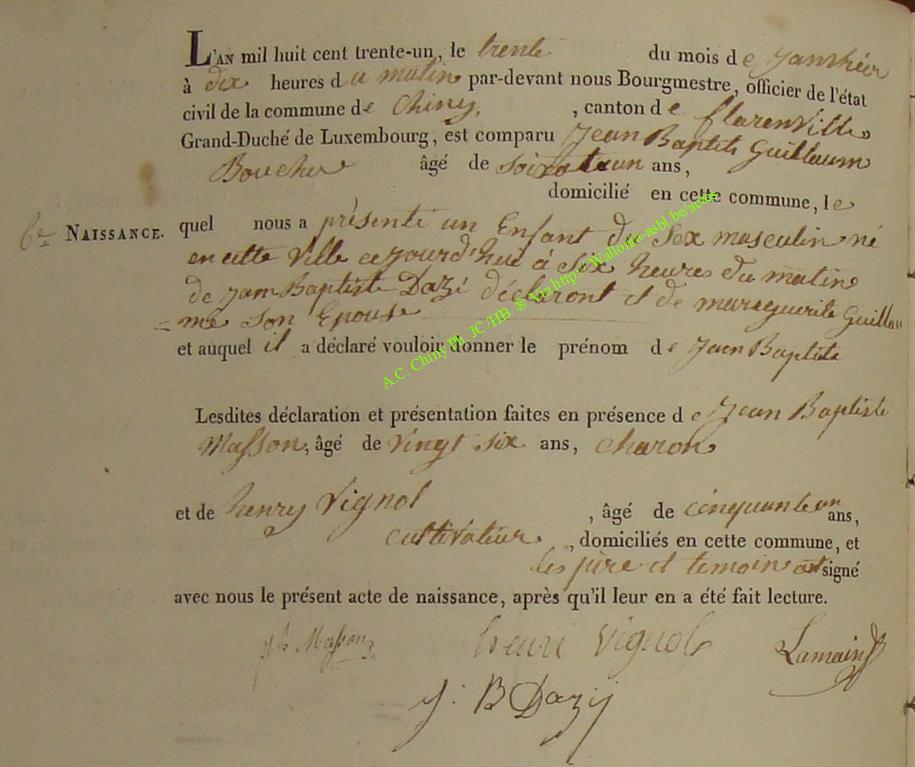 L'AN mil huit cent trente-un, le trente du mois de Janvhier
à dix heures du matin par-devant nous Bourgmestre, officier de l'état
civil de la commune de Chiny, , canton de florenville
Grand-Duché de Luxembourg, est comparu Jean Baptiste Guillaum
Boucher âgé de soixataun ans,
domicilié en cette commune, le
6e NAISSANCE. quel nous a présenté un Enfant du Sex masculin né
en cette Ville cejourd'hue à Six heures du matin
de Jean Baptiste Dazÿ déclaront et de marguerite Guillau
= me Son Epouse
et auquel il a déclaré vouloir donner le prénom de Jean Baptiste
Lesdites déclaration et présentation faites en présence de Jean Baptiste
Masson, âgé de vingt six ans, charon
et de henry Vignol , âgé de cinquanteun ans,
cultivateur , domiciliés en cette commune, et
les père et temoin ont signé
avec nous le présent acte de naissance, après qu'il leur en a été fait lecture.
jb Masson henri Vignol Lamain
J. B Dazij
A.C. Chiny Ph. JC/HB ® Via http://Wallonia-asbl.be/actes